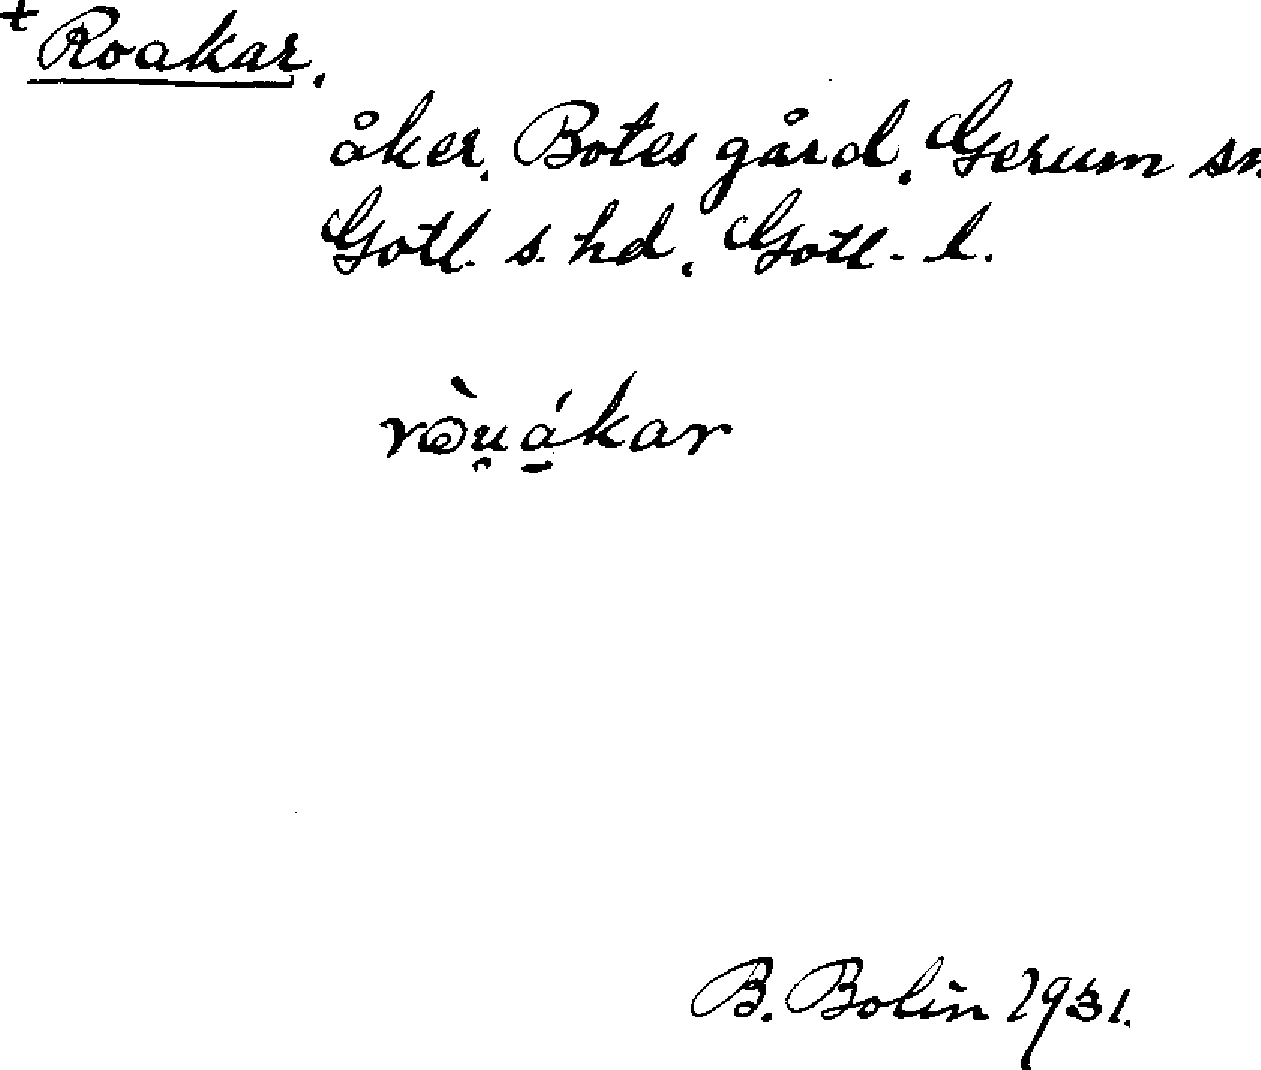 + Roakar.
åker, Botes gård, Gerum sn
Gotl. s. hd, Gotl. l.
ròu̯á̱kar
B. Bolin 1931.